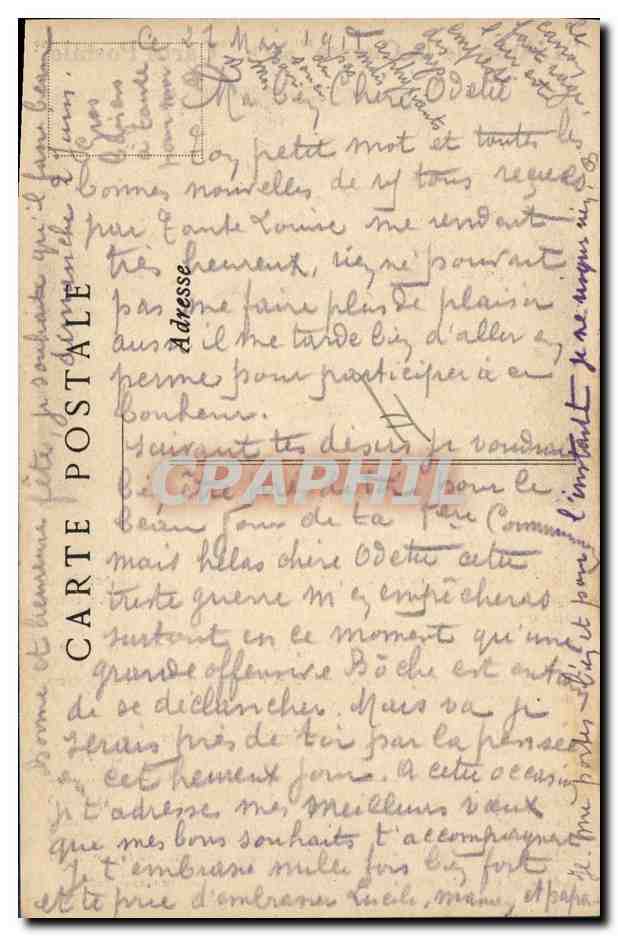 Ce 27 Mai 191
Ma bien Chère Odette
Ton petit mot et toutes les
bonnes nouvelles de vs tous reçues
par Tante Louise me rendent
très heureux, rien ne pouvait
pas me faire plus de plaisir
aussi il me tarde bien d'aller en
perme pour participer à ce
bonheur.
Suivant tes désirs je voudrais
bien être pour le
beau jour de ta 1ère Communion
mais hélas chère Odette cette
triste guerre m'en empêcheras
surtout en ce moment qu'une
grande offensive Bôche est entrain
de se déclancher. Mais va je
serais près de toi par la pensée
en cet heureux jour. A cette occasion
je t'adresses mes meilleurs vœux
que mes bons souhaits t'accompagnent
Je t'embrasse mille fois bien fort
et te prie d'embrasser Lucile, mamen et papa
Je me portes bien et pour l'instant je ne risque rien
Bonne et heureuse fête, je souhaite qu'il fasse beau
dimanche 2 juin.
Gros
baisers
à tante
pour moi
CARTE POSTALE
Adresse
CPAPHIL